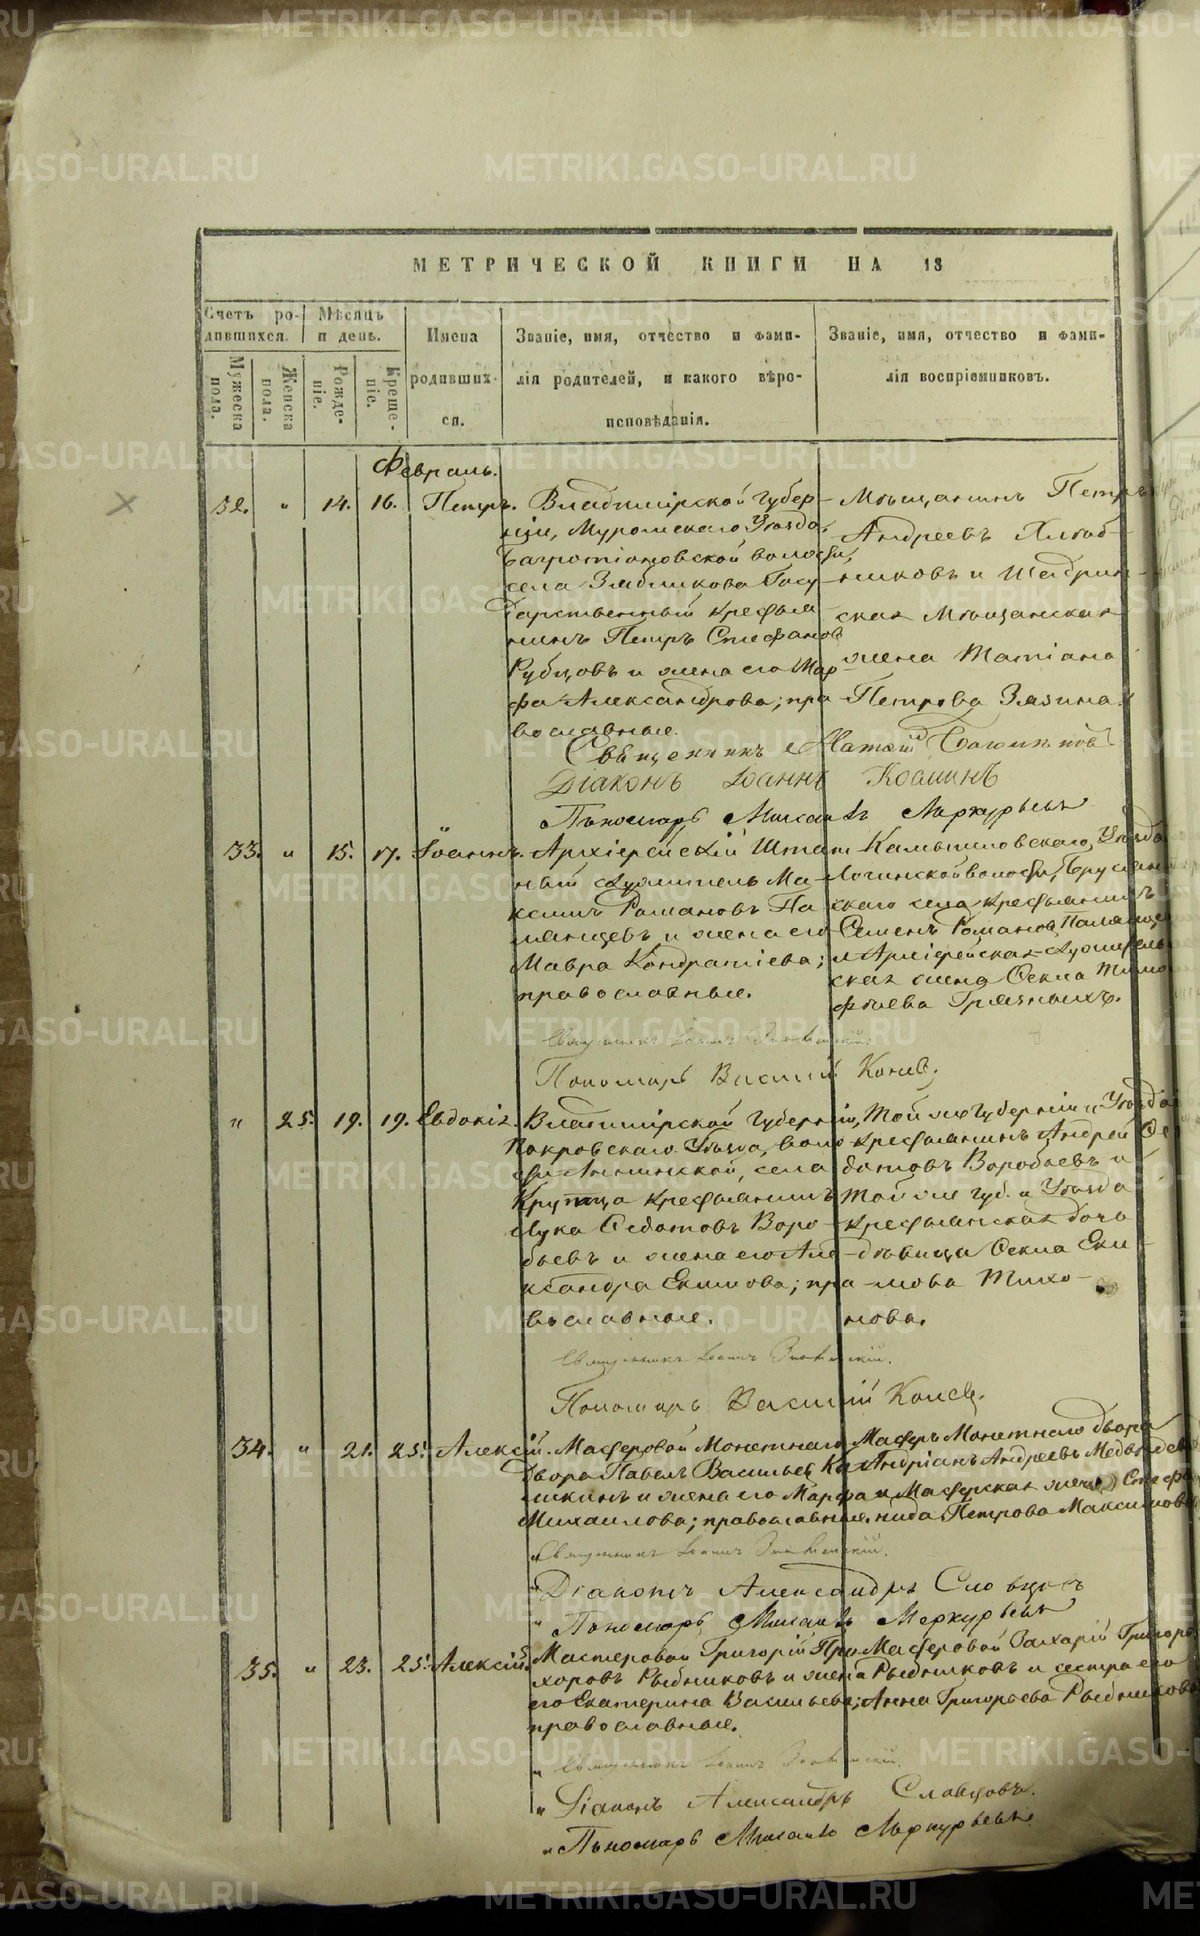 МЕТРИЧЕСКОЙ КНИГИ НА 18
Счетъ ро-
дившихся.
Мѣсяцъ
и день.
Мужеска
пола.
Женска
пола.
Рожде-
ніе.
Креще-
ніе.
Имена
родивших-
ся.
Званіе, имя, отчество и фами-
лія родителей, и какого вѣро-
исповѣданія.
Званіе, имя, отчество и фами-
лія воспріемниковъ.
Февраль.
32. " 14. 16. Петръ.
Владимірской Губер-
ніи, Муромскаго Уѣзда,
волости,
села Зябликова Госу-
дарственный крестья
нинъ Петръ Стефановъ
Рубцовъ и жена его Мар
фа Александрова; пра
вославные.
Мѣщанинъ Петръ
Андреевъ Хлѣб-
никовъ и Шадрин-
ская Мѣщанская
жена Татіана
Петрова Зязина.
Священникъ
Діаконъ Іоаннъ
Пономарь Михаилъ Меркурьевъ
33. " 15. 17. Іоаннъ.
Архіерейскій Штат
ный служитель Ма-
ксимъ Романовъ Па
лянцевъ и жена его
Мавра Кондратіева;
православные.
Камышловскаго Уѣзда
волости,
скаго села крестьянинъ
Семенъ Романовъ
и Архіерейская служитель
ская жена Фекла Тимо
фѣева Грязныхъ.
Священникъ Іоаннъ
Пономарь Василій
" 25. 19. 19. Евдокія.
Владимірской Губерніи,
Покровскаго Уѣзда, воло
сти Аннинской, села
крестьянинъ
Лука Федотовъ Воро-
бьевъ и жена его Але-
ксандра Екимова; пра-
вославные.
Той же Губерніи и Уѣзда
крестьянинъ Андрей Фе
дотовъ Воробьевъ и
той же Губ. и Уѣзда
крестьянская дочь
дѣвица Фекла Еки-
мова Тихо-
нова.
Священникъ Іоаннъ
Пономарь Василій
34. " 21. 25. Алексій.
Мастеровой Монетнаго
двора Павелъ Васильевъ
и жена его Марфа
Михаилова; православные.
Мастеръ Монетнаго двора
Андріанъ Андреевъ Медвѣдевъ
и Мастерская жена Стефа
нида Петрова Максимова
Священникъ Іоаннъ
" Діаконъ Александръ Словцовъ
" Пономарь Михаилъ Меркурьевъ
35. " 23. 25. Алексій.
Мастеровой Григорій Про
хоровъ Рыбниковъ и жена
его Екатерина Васильева;
православные.
Мастеровой Захарій Григорь
Рыбниковъ и сестра его
Анна Григорьева Рыбникова
" Священникъ Іоаннъ
" Діаконъ Александръ Словцовъ.
" Пономарь Михаилъ Меркурьевъ
METRIKI.GASO-URAL.RU